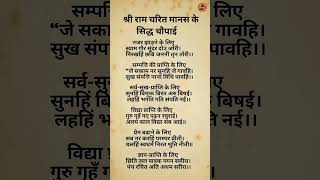 श्री राम चरित मानस के
सिद्ध चौपाई
नजर झाडने के लिए
स्याम गौर सुंदर दोउ जोरी।
निरखहिं छबि जननी तृन तोरी।।
सम्पत्ति की प्राप्ति के लिए
“जे सकाम नर सुनहिं जे गावहिं।
सुख संपत्ति नाना विधि पावहिं।।
सर्व-सुख-प्राप्ति के लिए
सुनहिं बिमुक्त बिरत अरु बिषई।
लहहिं भगति गति संपति नई।।
विद्या प्राप्ति के लिए
गुरु गृहँ गए पढ़न रघुराई।
अलप काल विद्या सब आई।।
प्रेम बढाने के लिए
सब नर करहिं परस्पर प्रीती।
चलहिं स्वधर्म निरत श्रुति नीती॥
ज्ञान-प्राप्ति के लिए
छिति जल पावक गगन समीरा।
पंच रचित अति अधम सरीरा।।
“जे सकाम
सुख संपत्ति
वहि।
वहिं।।